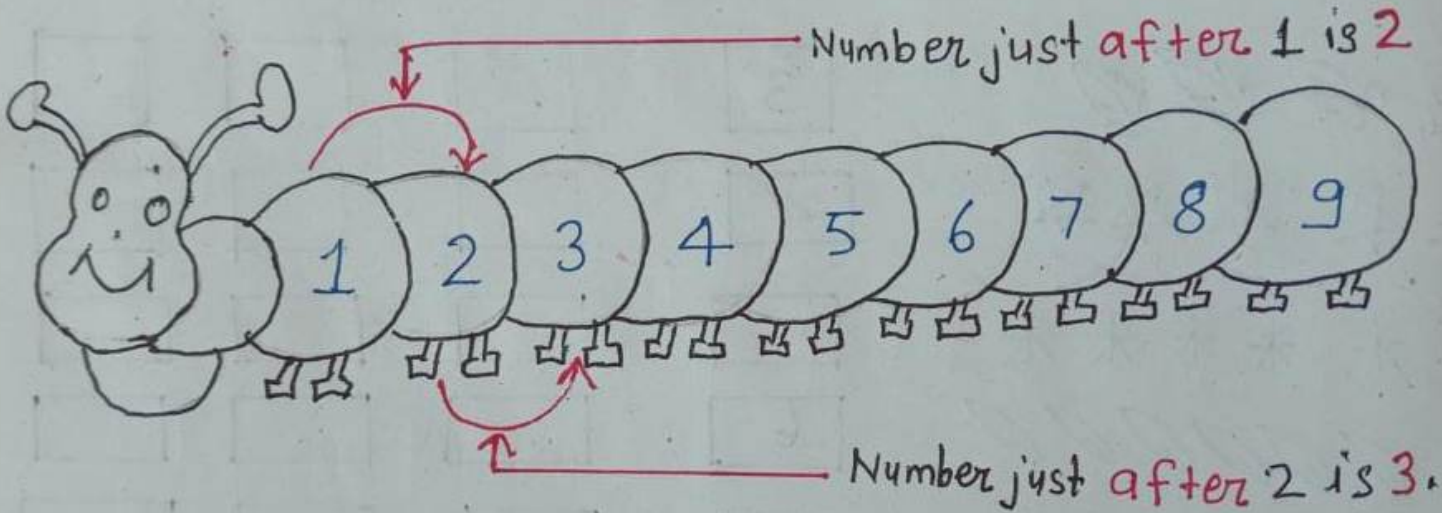 Number just after 1 is 2
1 2 3 4 5 6 7 8 9
Number just after 2 is 3.